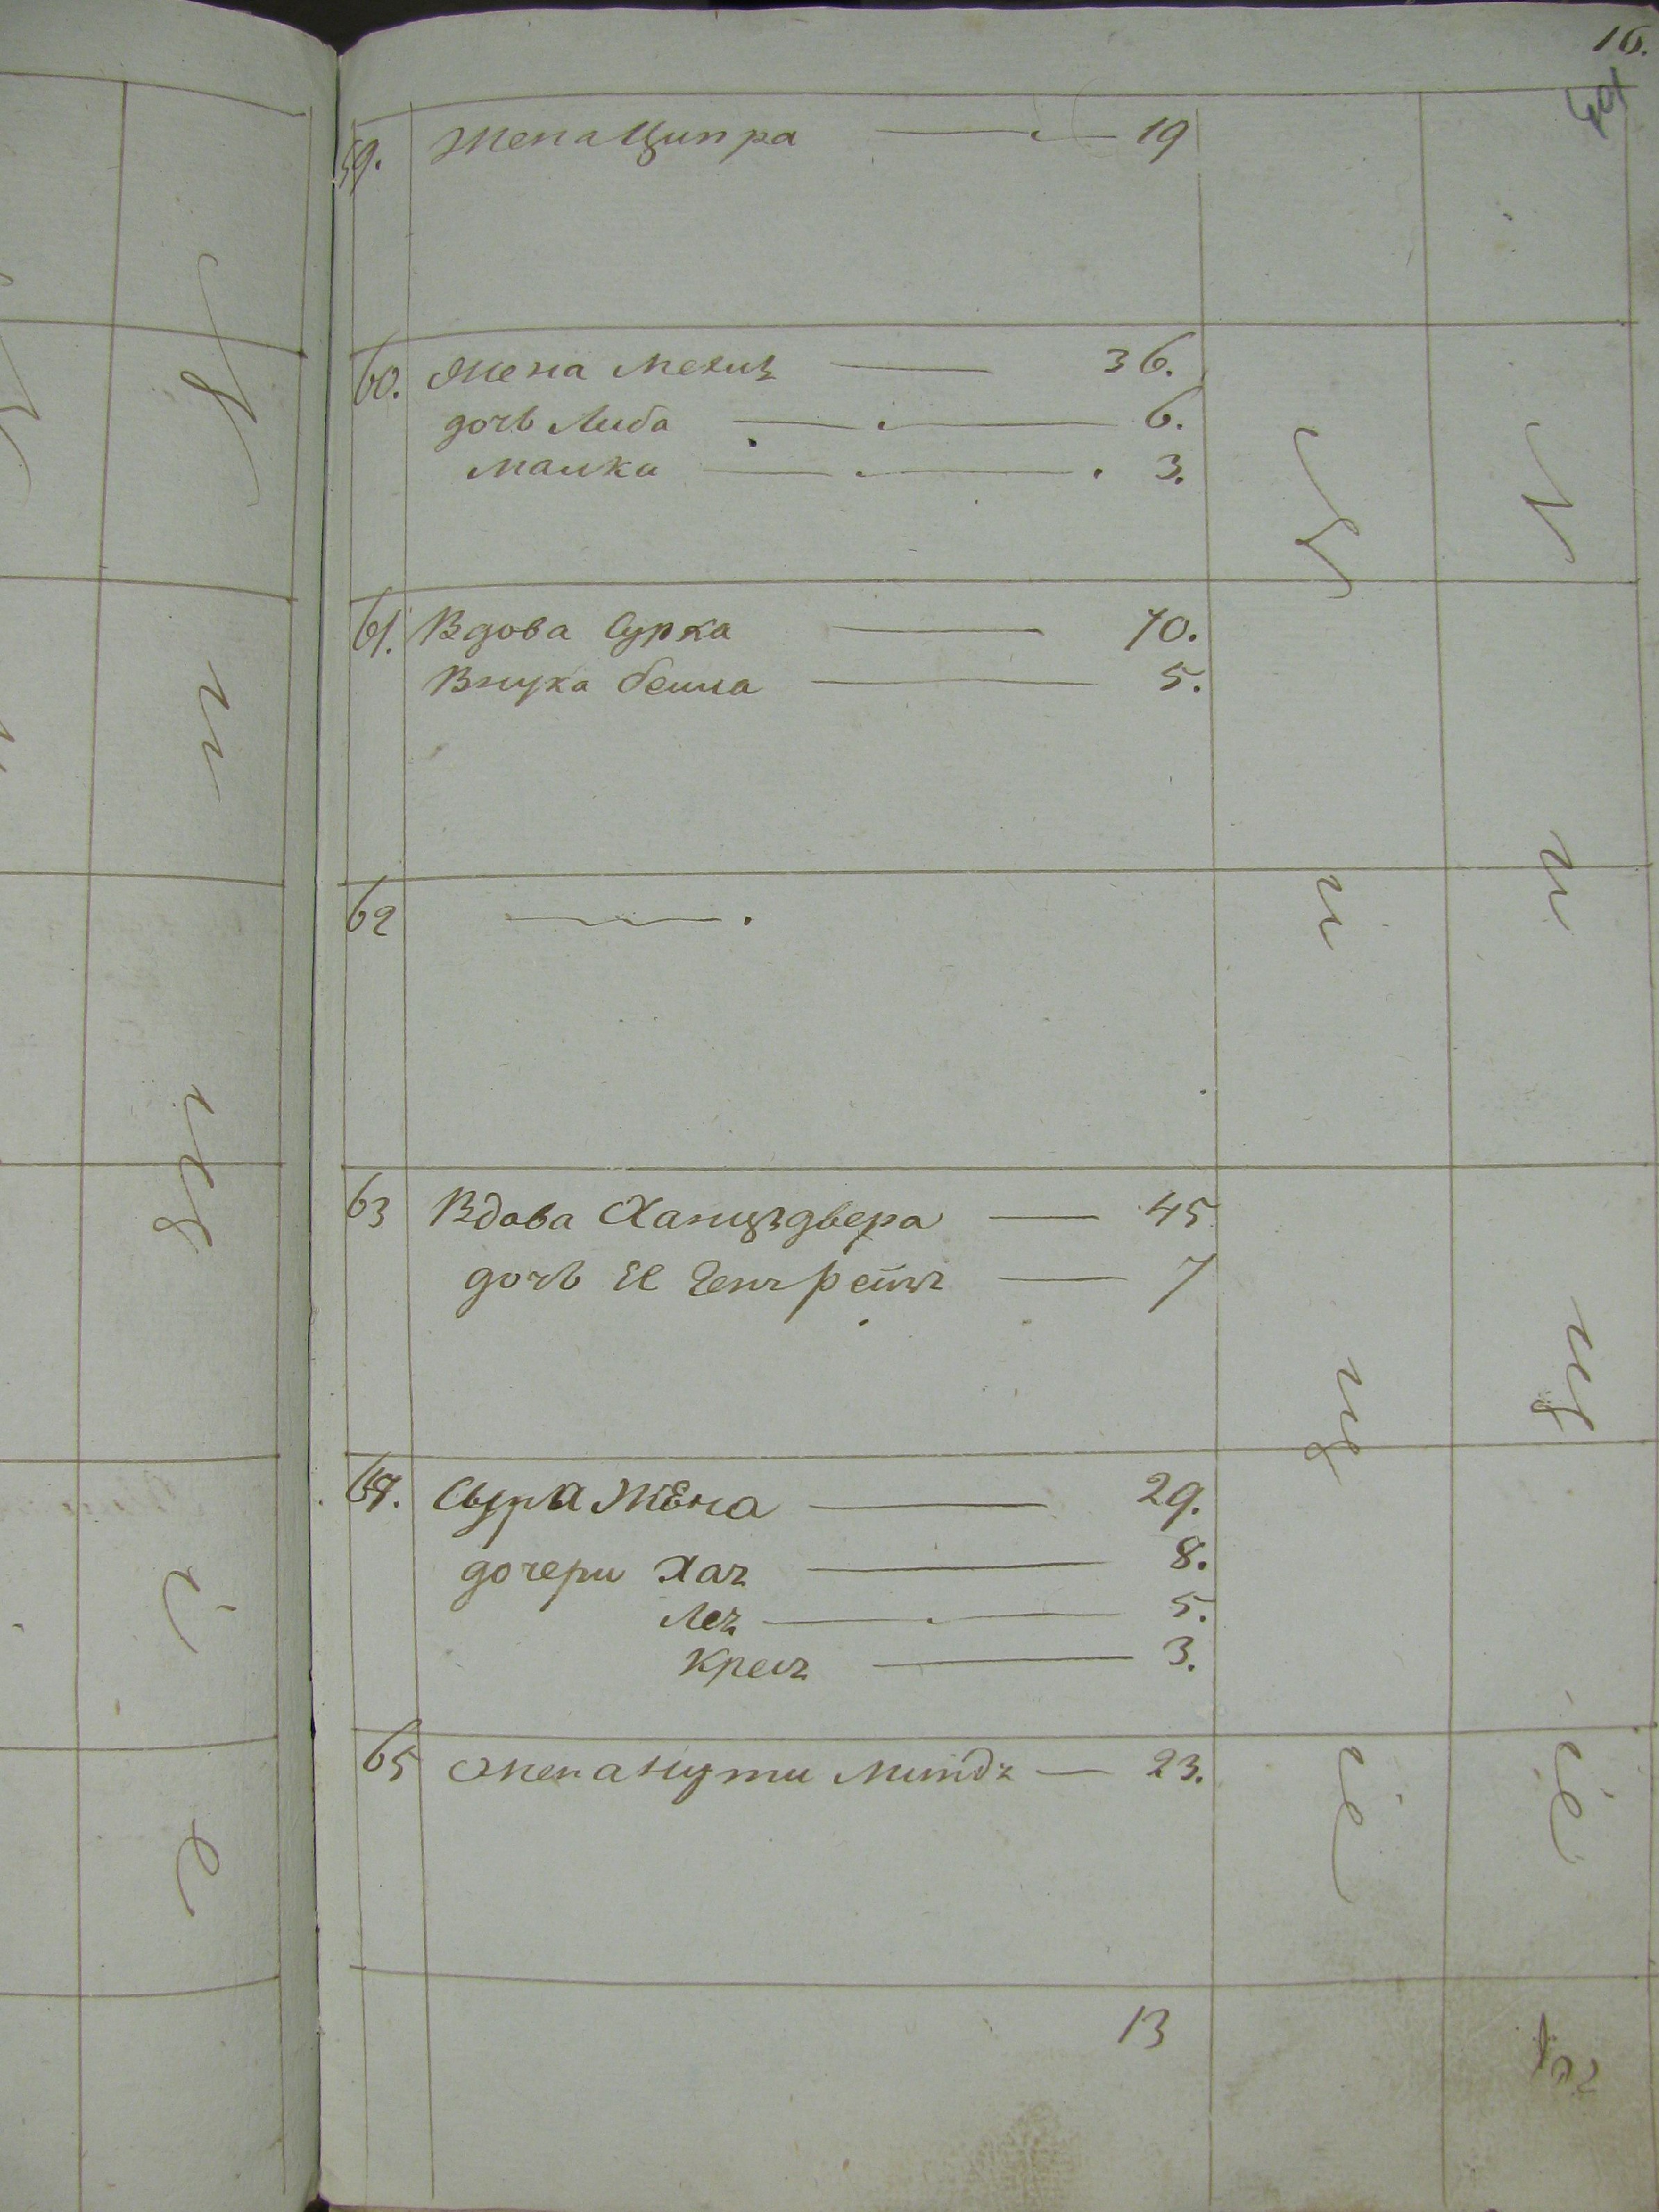 16.
59. Жена Ципра — 19
60. Жена Мехиъ — 36.
дочь Либа — 6.
Малка — 3.
61. Вдова Сурка — 70.
Внука бейла — 5.
62 — .
63 Вдова Ханцъдвера — 45
дочь Ее Генъ рейзъ — 7
64. Сура Жена — 29.
дочери Хаъ — 8.
Леъ — 5.
Крейъ — 3.
65 Жена Нути Миндъ — 23.
13